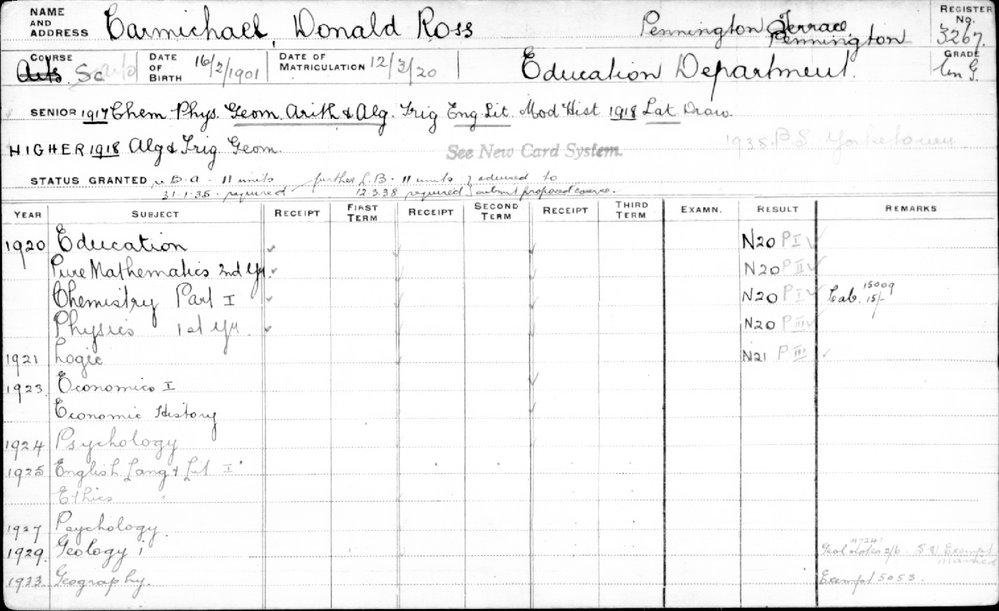 NAME AND ADDRESS Carmichael, Donald Ross Pennington Terrace, Pennington REGISTER No. 3267
COURSE Arts. Sc DATE OF BIRTH 16/2/1901 DATE OF MATRICULATION 12/3/20 Education Department. GRADE
SENIOR 1917 Chem Phys. Geom. Arith & Alg. Trig Eng Lit. Mod Hist 1918 Lat Draw.
HIGHER 1918 Alg & Trig Geom. See New Card System. 1935. P.S. Yorketown
STATUS GRANTED B.A. 11 units further L.B. 11 units advised to
31.1.35. required 12.3.38 required submit proposed course.
YEAR SUBJECT RECEIPT FIRST TERM RECEIPT SECOND TERM RECEIPT THIRD TERM EXAMN. RESULT REMARKS
1920 Education N20 P I
Pure Mathematics 2nd Yr. N20 P II
Chemistry Part I N20 P I Lab. 15009 15/-
Physics 1st Yr. N20 P III
1921 Logic N21 P III
1923 Economics I
Economic History
1924 Psychology
1925 English Lang & Lit I
Ethics "
1927 Psychology.
1929 Geology i Geol Notes 2/6. Exempt
1933 Geography. Exempt 5053.